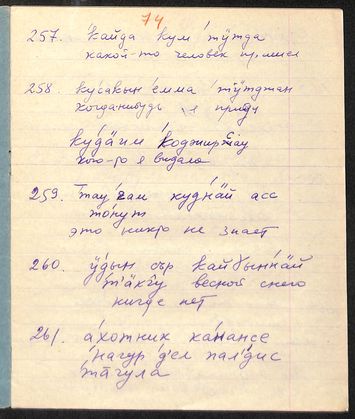 74
257. кайда кум тӱтда
какой-то человек пришел
258. кусакын емма тӱтджан
когданибудь я приду
кудӓгм коджирбау
кого-то я видала
259. тау ҷам куднӓй асс
тонут
это никто не знает
260. ӱдын сыр кайбыннӓй
весной снега
нигде нет
261. ахотник канансе
нагур дел палдис
тӓгула